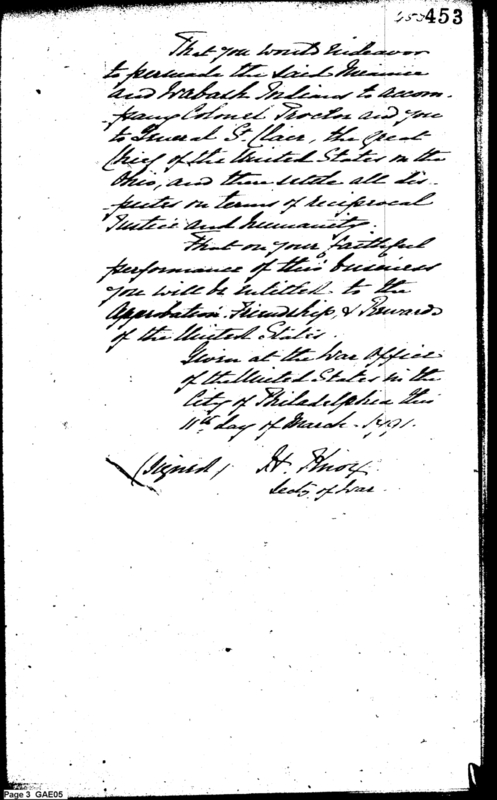 453 453
That you would endeavor
to persuade the said Meamie
and Wabash Indians to accom-
pany Colonel Proctor and you
to General St Clair, the great
Chief of the United States on the
Ohio, and there settle all dis-
putes on terms of reciprocal
Justice and humanity.
That on your faithful
performance of this business
you will be entitled to the
Approbation, Friendship, & Rewards
of the United States.
Given at the War Office
of the United States in the
City of Philadelphia this
11th day of March 1791.
(signed) H. Knox
Secty of War.
Page 3 GAE05